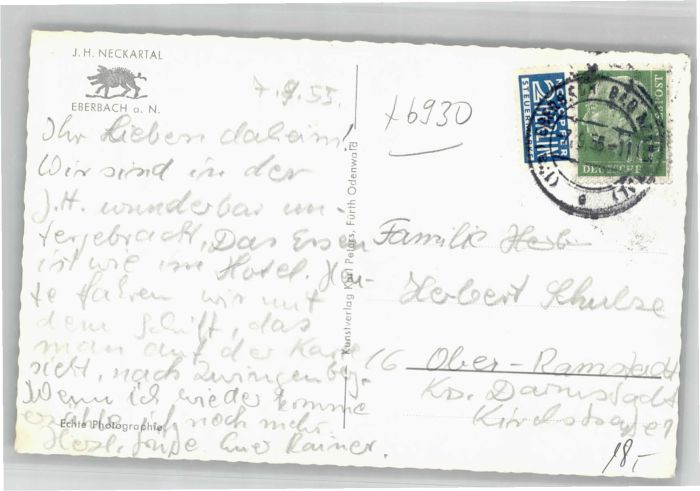 J.H. NECKARTAL
EBERBACH a. N.
7.9.55.
Ihr Lieben daheim!
Wir sind in der
J.H. wunderbar un-
tergebracht. Das Essen
ist wie im Hotel. Heu-
te fahren wir mit
dem Schiff, das
man auf der Karte
sieht, nach Zwingenberg.
Wenn ich wieder komme
erzähle ich noch mehr.
Herzl. Grüße Euer Rainer.
Echte Photographie
Kunstverlag Karl Peters, Fürth Odenwald
+6930
NOTOPFER
2 BERLIN
STEUERMARKE
DEUTSCHE
BUNDESPOST
Familie
Herbert Schulze
16 Ober-Ramstadt
Krs. Darmstadt
Kirchstraße 1
18,-